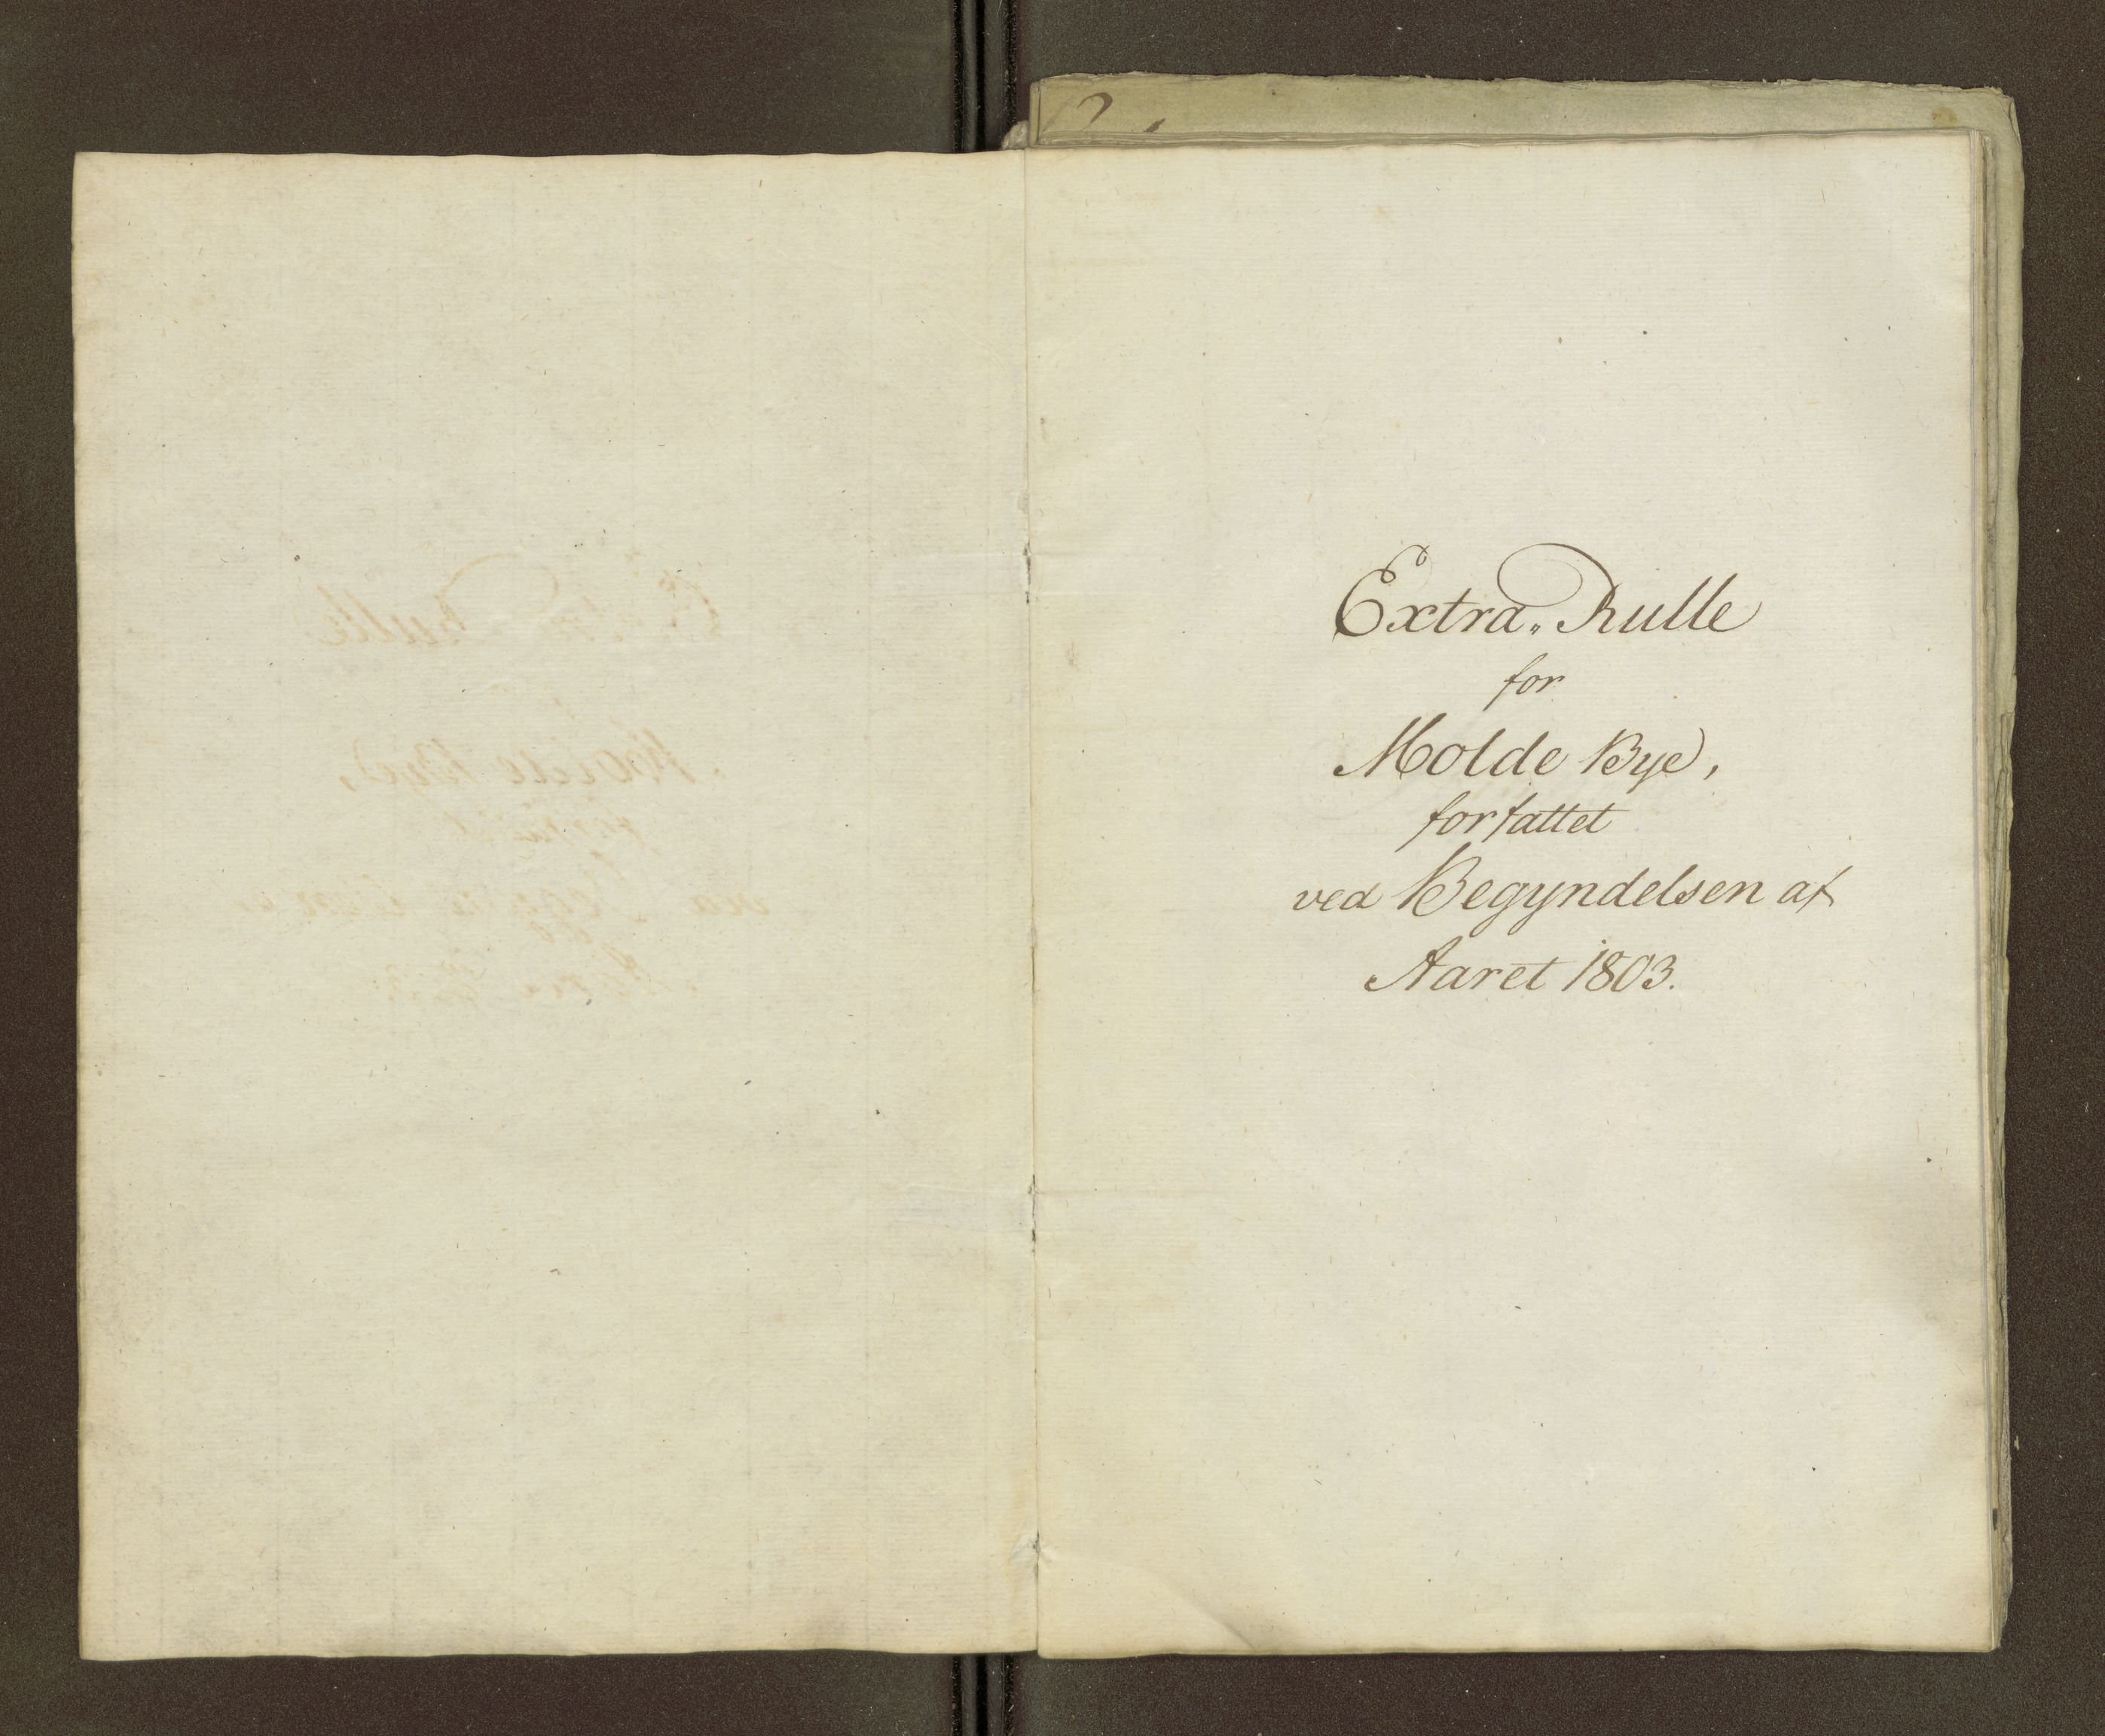 Extra„ Rulle
for
Molde Bye,
forfattet
ved Begyndelsen af
Aaret 1803.